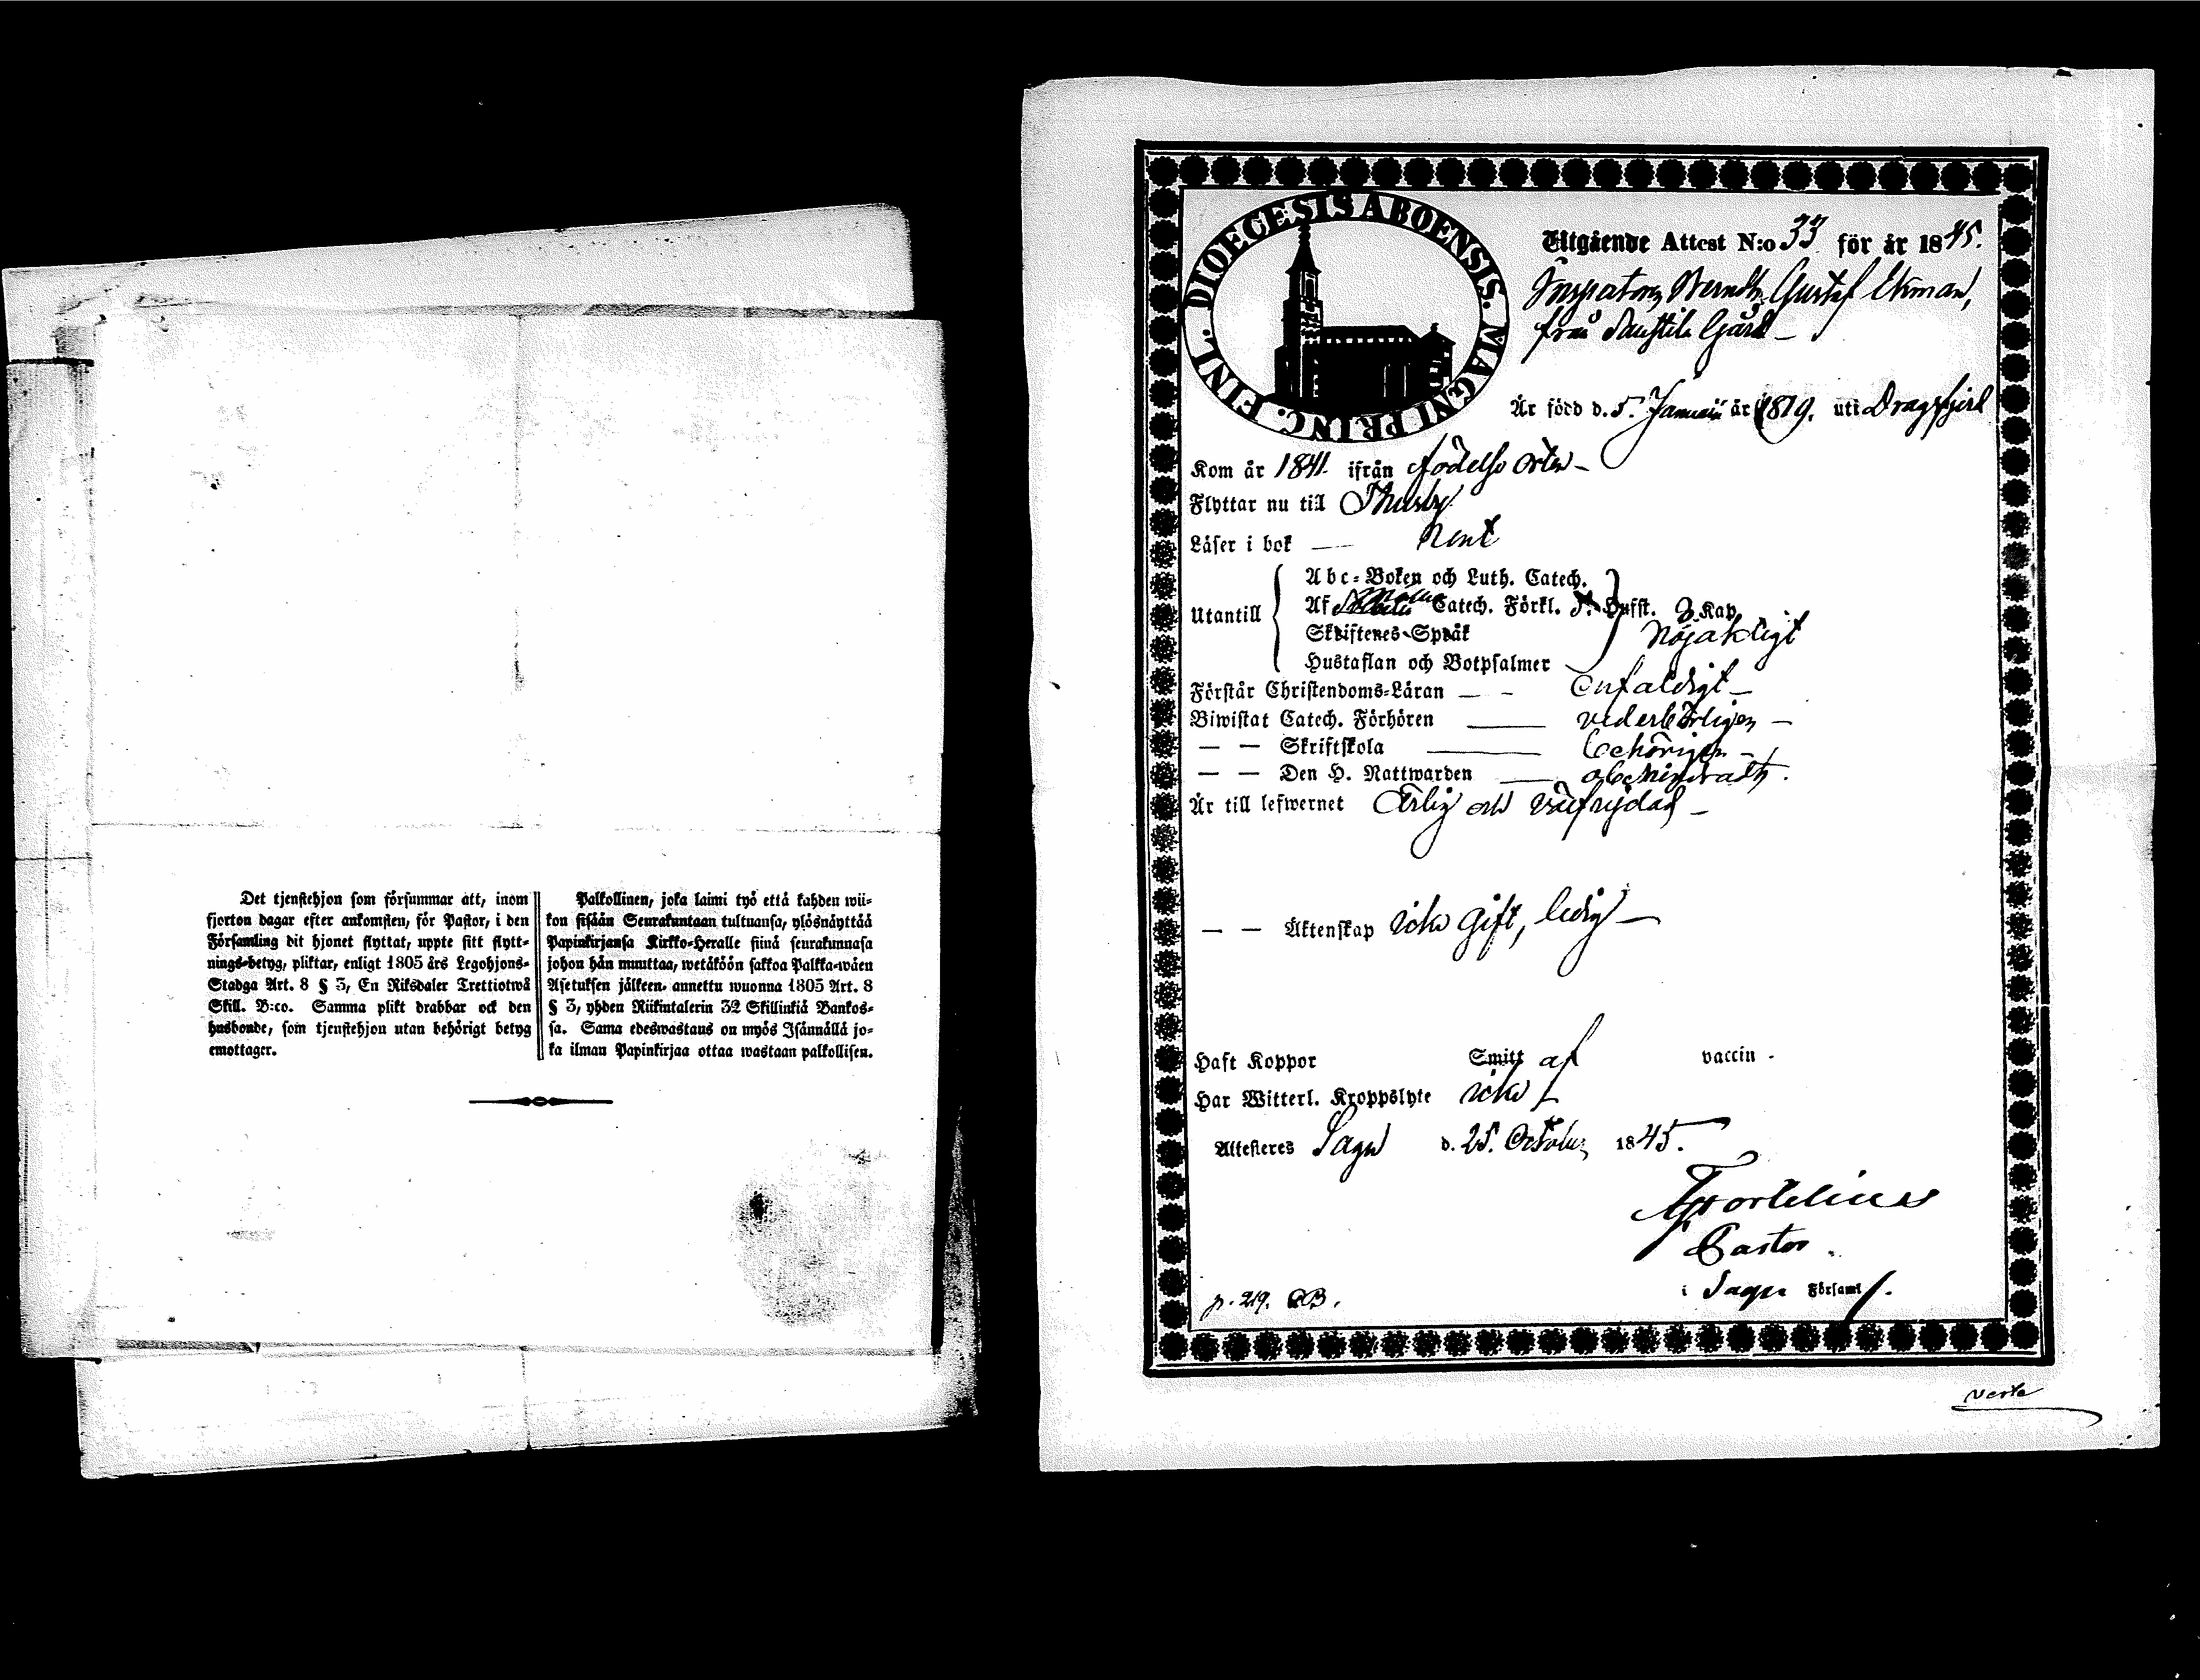 Det tjenstehjon som försummar att, inom
fjorton dagar efter ankomsten, för Pastor, i den
Församling dit hjonet flyttat, uppte sitt flytt-
nings-betyg, pliktar, enligt 1805 års Legohjons-
Stadga Art. 8 § 3, En Riksdaler Trettiotwå
Skill. B:co. Samma plikt drabbar ock den
husbonde, som tjenstehjon utan behörigt betyg
emottager.
Palkollinen, joka laimi lyö että kahden wii-
kon sisään Seurakuntaan tultuansa, ylösnäyttää
Papinkirjansa Kirkko-Herralle siinä seurakunnasa
johon hän muuttaa, wetäköön sakkoa Palkka-wäen
Asetuksen jälkeen, annettu wuonna 1805 Art. 8
§ 3, yhden Riikintalerin 32 Skillinkiä Bankos-
sa. Sama edeswastaus on myös Isännällä jo-
ka ilman Papinkirjaa ottaa wastaan palkollisen.
DIOECESIS ABOENSIS. MAGNI PRINC. FINL.
Utgående Attest N:o 33 för år 1845.
Inspatoren Berndt Gustaf Ekman,
från Gård –
Är född d. 5. Januarii år 1819. uti Dragsfjerd
Kom år 1841. ifrån födelse orten –
Flyttar nu till Thusby
Läser i bok — rent
Utantill
Abc-Boken och Luth. Catech.
Af Catech. Förkl. Hufst. 3 Kap
Skriftenes Språk nöjaktigt
Hustaflan och Botpsalmer
Förstår Christendoms-Läran — – enfaldigt –
Biwistat Catech. Förhören — vederbörligen –
— — Skriftskola — behörigen –
— — Den H. Nattwarden — obehindradt.
Är till lefwernet Ärlig och välfrejdad –
— — Äktenskap icke gift, ledig –
Haft Koppor Smitt af vaccin -
Har Witterl. Kroppslyte icke
Attesteres Sagu d. 25. October 1845.
Pastor
i Sagu Församl.
p. 219. CB.
Verte